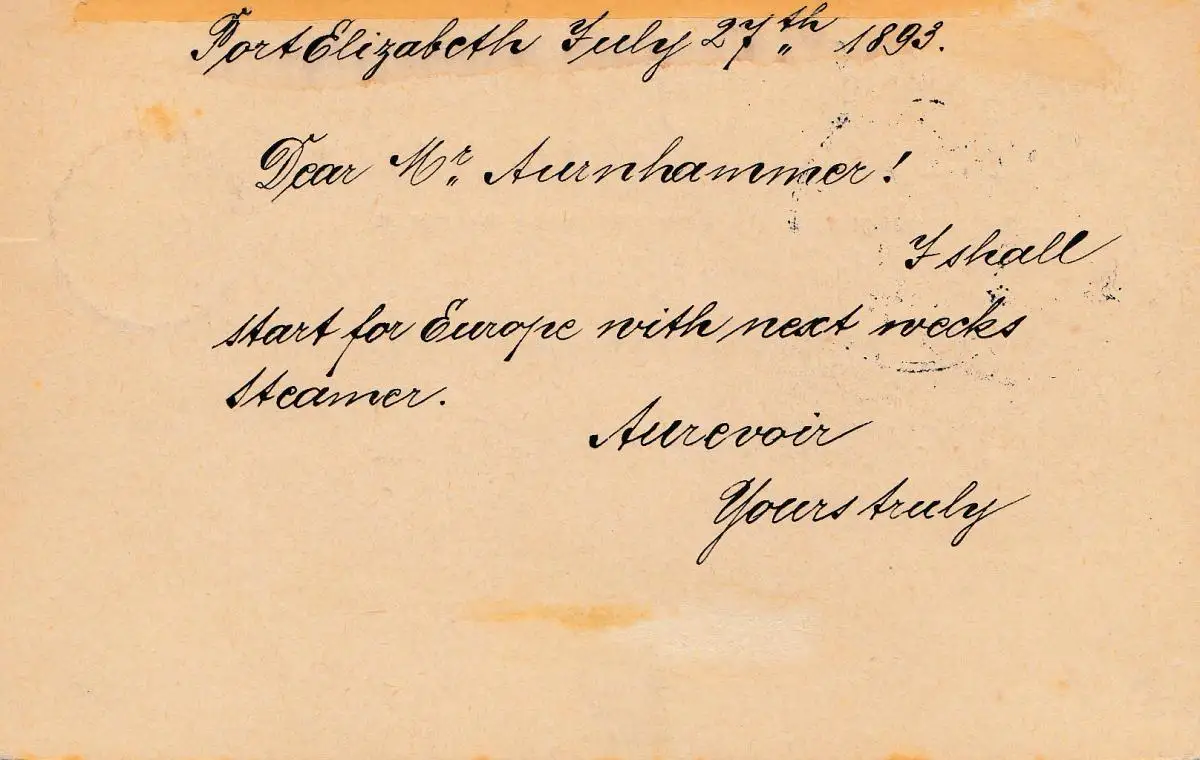 Port Elizabeth July 27th 1893.
Dear Mr. Aurnhammer!
I shall
start for Europe with next weeks
steamer.
Aurevoir
Yours truly